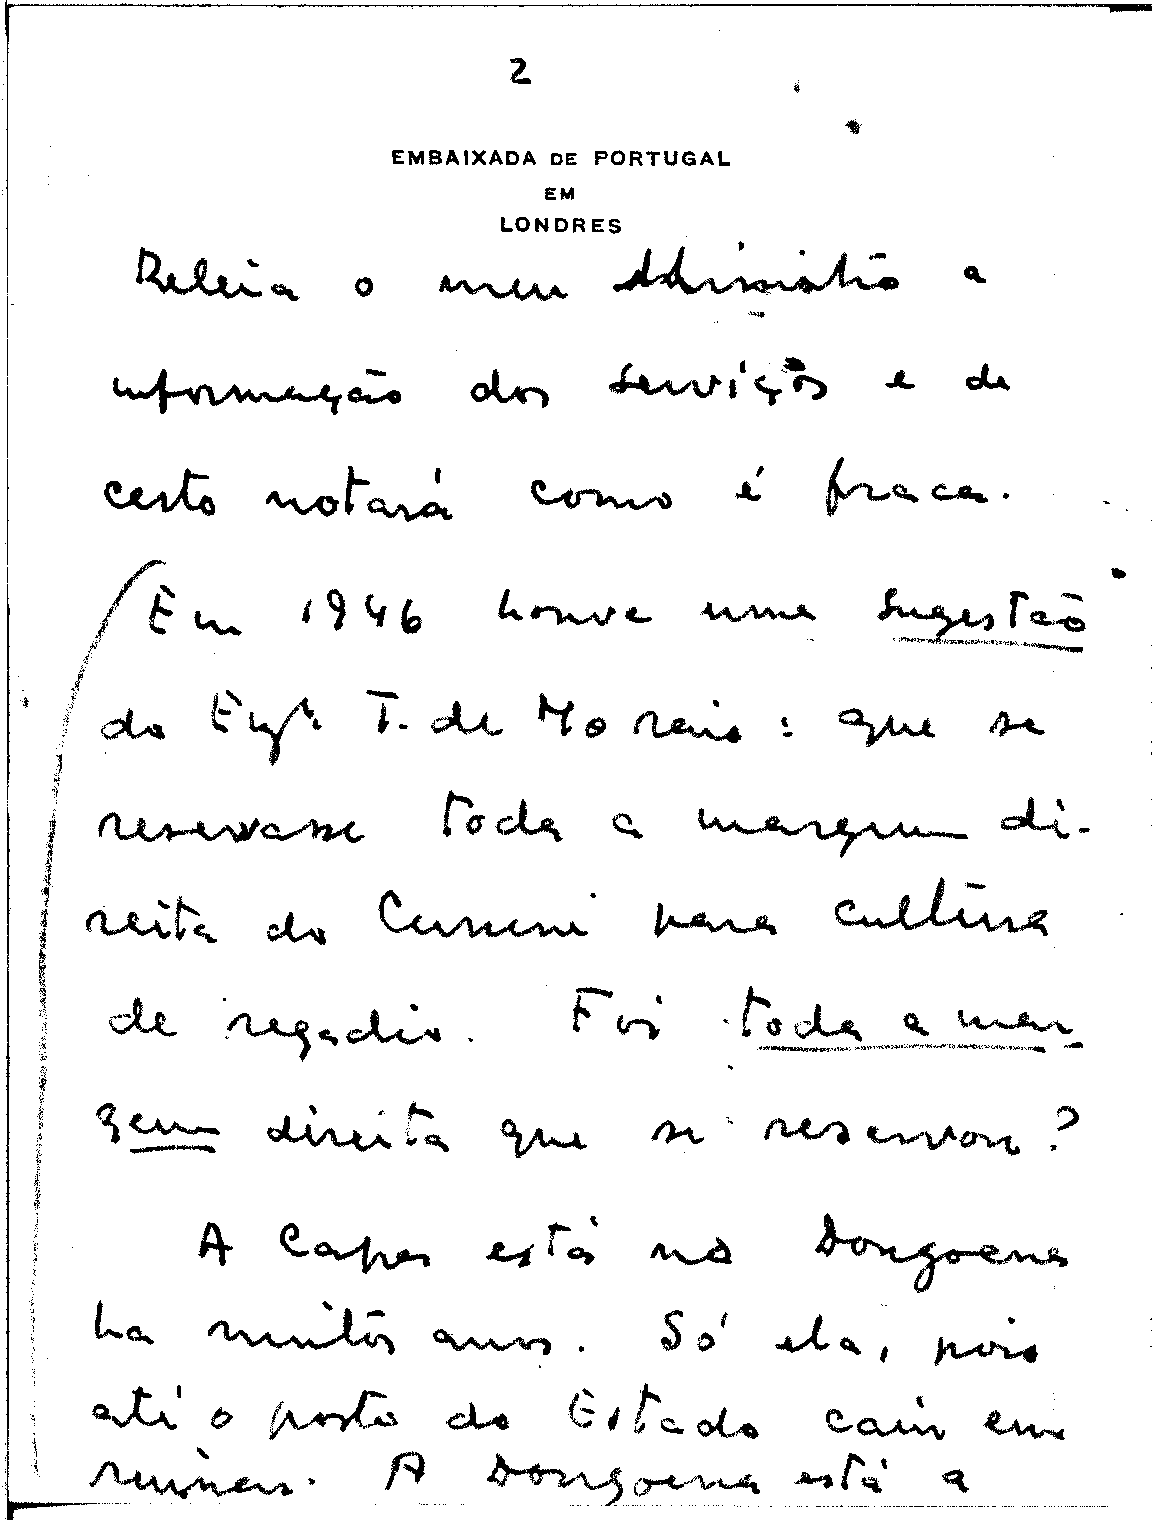 2
EMBAIXADA DE PORTUGAL
EM
LONDRES
Releia o meu Ministro a
informação dos serviços e de
certo notará como é fraca.
Em 1946 houve uma sugestão
do Engº T. de Morais: que se
reservasse toda a margem di-
reita do Cunene para cultura
de regadio. Foi toda a mar
gem direita que se reservou?
A Capes está na Dongoena
ha muitos anos. Só ela, pois
até o posto do Estado caiu em
ruinas. A Dongoena está a